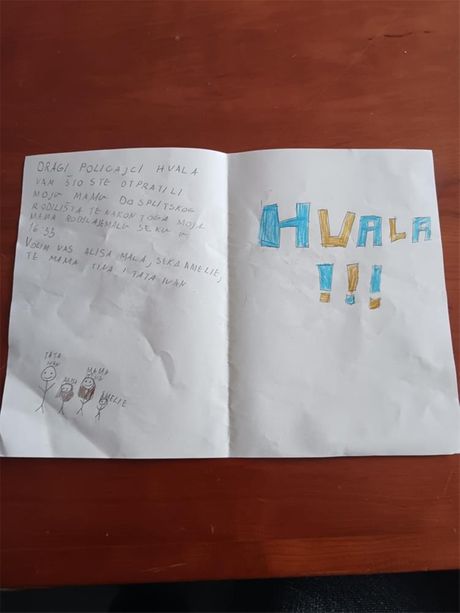 DRAGI POLICAJCI HVALA
VAM ŠTO STE OTPRATILI
MOJU MAMU DO SPLITSKOG
RODILIŠTA TE NAKON TOGA MOJA
MAMA RODILA MALU SEKU U
16:35
VOLIM VAS ALISA MALA, SEKA AMELIE,
TE MAMA TINA I TATA IVAN
TATA
MAMA
AMELIE
HVALA
!!!